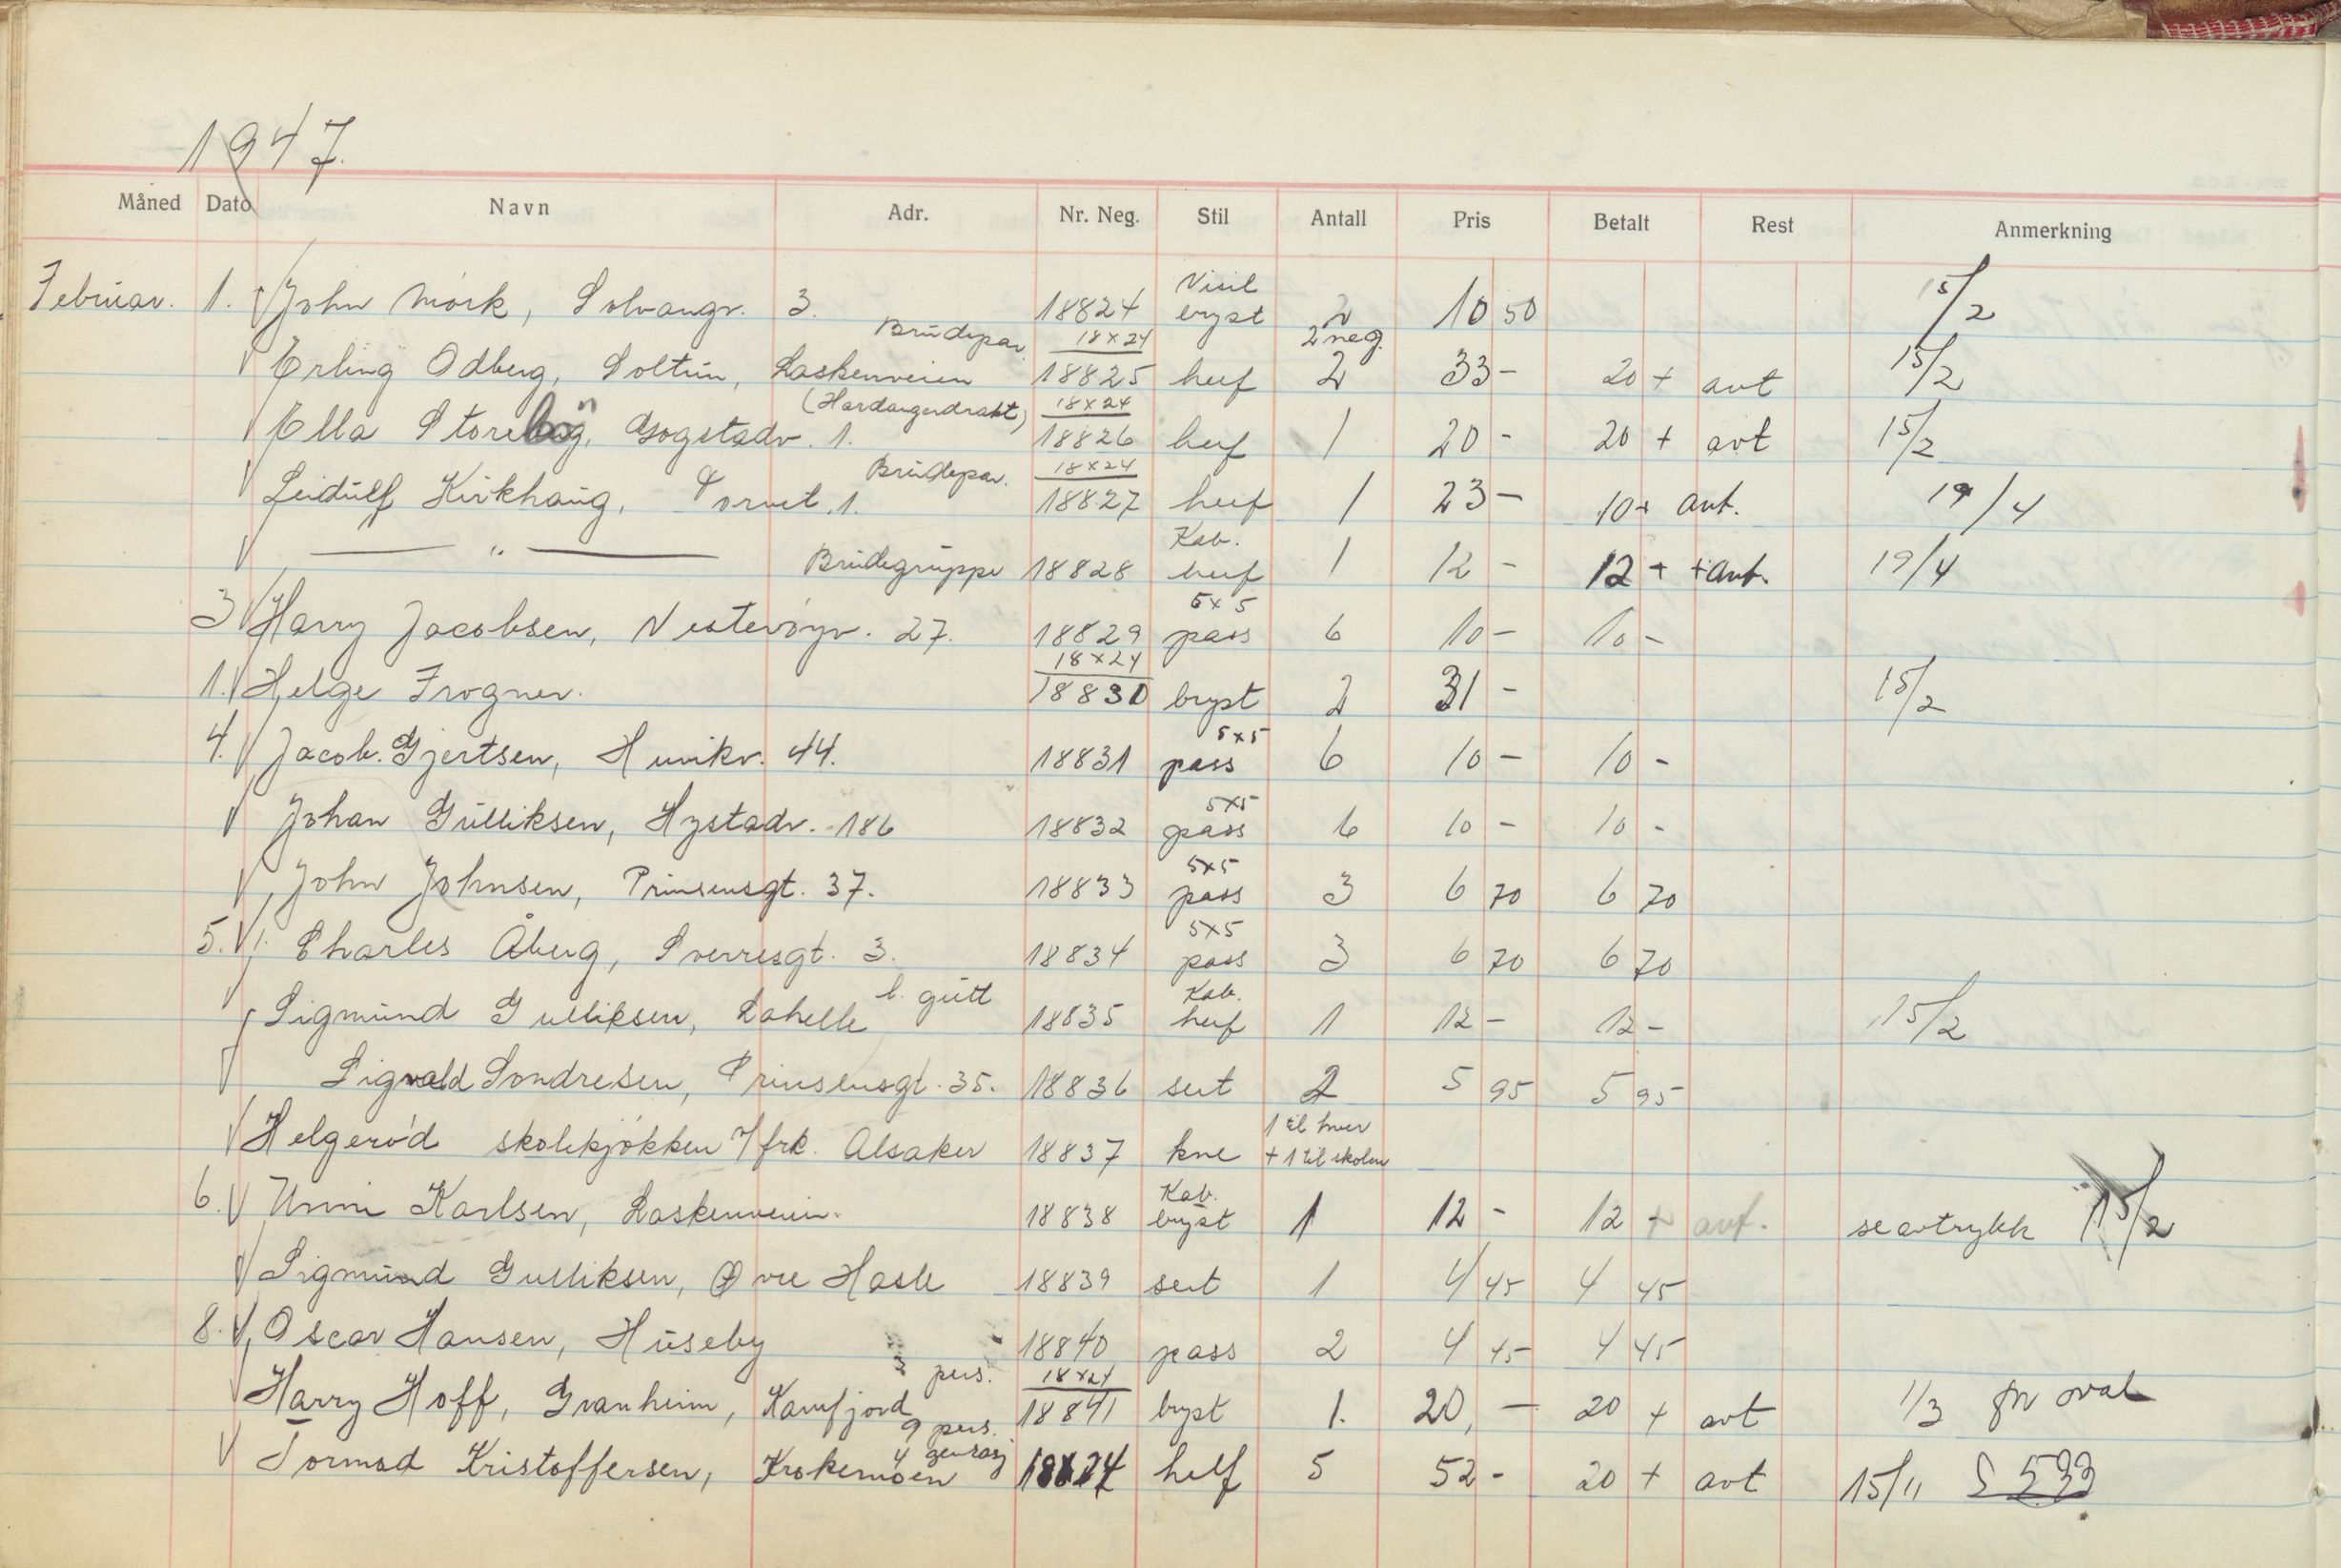 1947.
Måned Dato Navn Adr. Nr. Neg. Stil Antall Pris Betalt Rest Anmerkning
Februar. 1. John Mørk, Solvangv. 3. 18824 Visit bryst 2 10 50 15/2
Erling Odberg, Soltun, Laskenveien Brudepar. 18x24 18825 heif 2 neg. 2 33 - 20 + avt 15/2
Ella Gogstadv. 1. (Hardangerdrakt) 18x24 18826 heif 1 20 - 20 + avt 15/2
Leidulf Kirkhaug, Torvet 1. Brudepar. 18x24 18827 heif 1 23 - 10 + avt. 19/4
— " — Brudegruppe 18828 Kab. heif 1 12 - 12 + + avt. 19/4
3 Harry Jacobsen, Vesterøyv. 27. 18829 5x5 pass 6 10 - 10 -
1. Helge Frogner. 18x24 18830 bryst 2 31 - 15/2
4. Jacob. Gjertsen, Hunikv. 44. 18831 5x5 pass 6 10 - 10 -
Johan Gulliksen, Hystadv. 186 18832 5x5 pass 6 10 - 10 -
John Johnsen, Prinsensgt. 37. 18833 5x5 pass 3 6 70 6 70
5. Charles Åberg, Sverresgt. 3. 18834 5x5 pass 3 6 70 6 70
Sigmund Gulliksen, Lahelle l. gutt 18835 Kab. heif 1 12 - 12 - 15/2
Sigvald Sondresen, Prinsensgt. 35. 18836 sert 2 5 95 5 95
Helgerød skolekjøkken v/ frk. Alsaker 18837 kne 1 til hver + 1 til skolen
6. Unni Karlsen, Laskenveien. 18838 Kab. bryst 1 12 - 12 + avt. se avtrykk 15/2
Sigmund Gulliksen, Øvre Hasle 18839 sert 1 4 45 4 45
8. Oscar Hansen, Huseby 18840 pass 2 4 45 4 45
Harry Hoff, Granheim, Kamfjord 3 pers. 18x24 18841 bryst 1. 20, - 20 + avt 1/3 oval
Tormod Kristoffersen, Krokemoen 9 pers. 4 18x24 helf 5 52 - 20 + avt 15/11 S 533